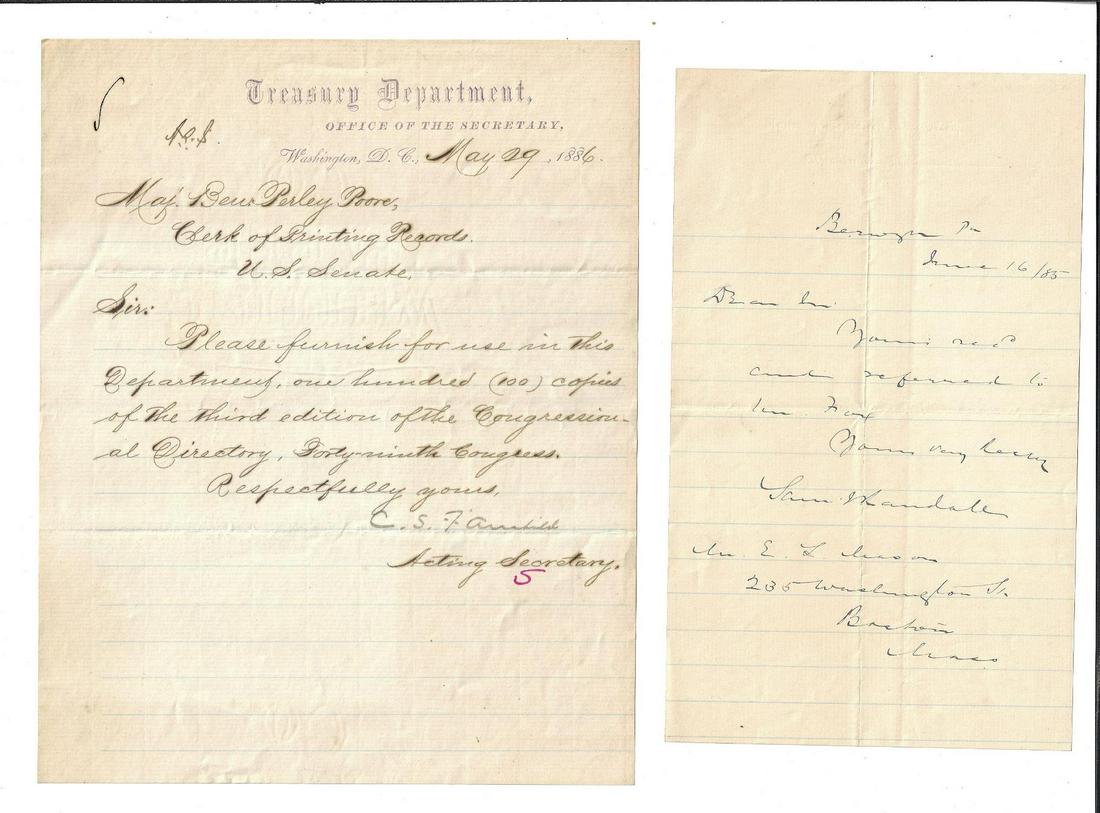 Treasury Department,
OFFICE OF THE SECRETARY,
Washington, D. C., May 29, 1886.
Maj. Ben: Perley Poore,
Clerk of Printing Records.
U. S. Senate.
Sir:
Please furnish for use in this
Department, one hundred (100) copies
of the third edition of the Congression-
al Directory, Forty-ninth Congress.
Respectfully yours,
C. S. Fairchild
Acting Secretary.
5
Berwyn Pa
June 16/85
Dear Sir
Yours recd
and referred to
Mr. Fox
Yours very truly
Sam J Randall
Mr. E. L Mason
235 Washington St.
Boston
Mass